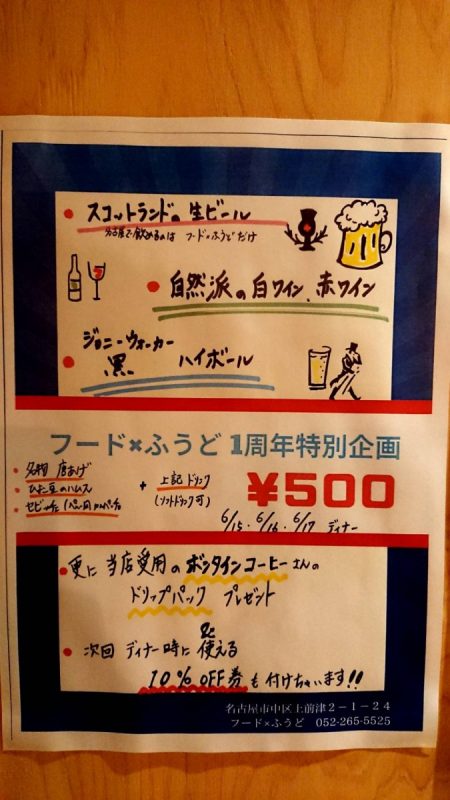 • スコットランドの 生ビール
名古屋で飲めるのは フード×ふうどだけ
• 自然派の白ワイン、赤ワイン
• ジョニーウォーカー
黒 ハイボール
フード×ふうど 1周年特別企画
• 名物 唐あげ
• ひよこ豆のハムス
• セビーチェ (ペルー風カルパッチョ)
+ 上記ドリンク
(ソフトドリンク可)
¥500
6/15・6/16・6/17 ディナー
• 更に 当店愛用の ボンタインコーヒーさんの
ドリップパック プレゼント
• 次回 ディナー時に 使える
10% OFF券 も付けちゃいます!!
名古屋市中区上前津2-1-24
フード×ふうど 052-265-5525